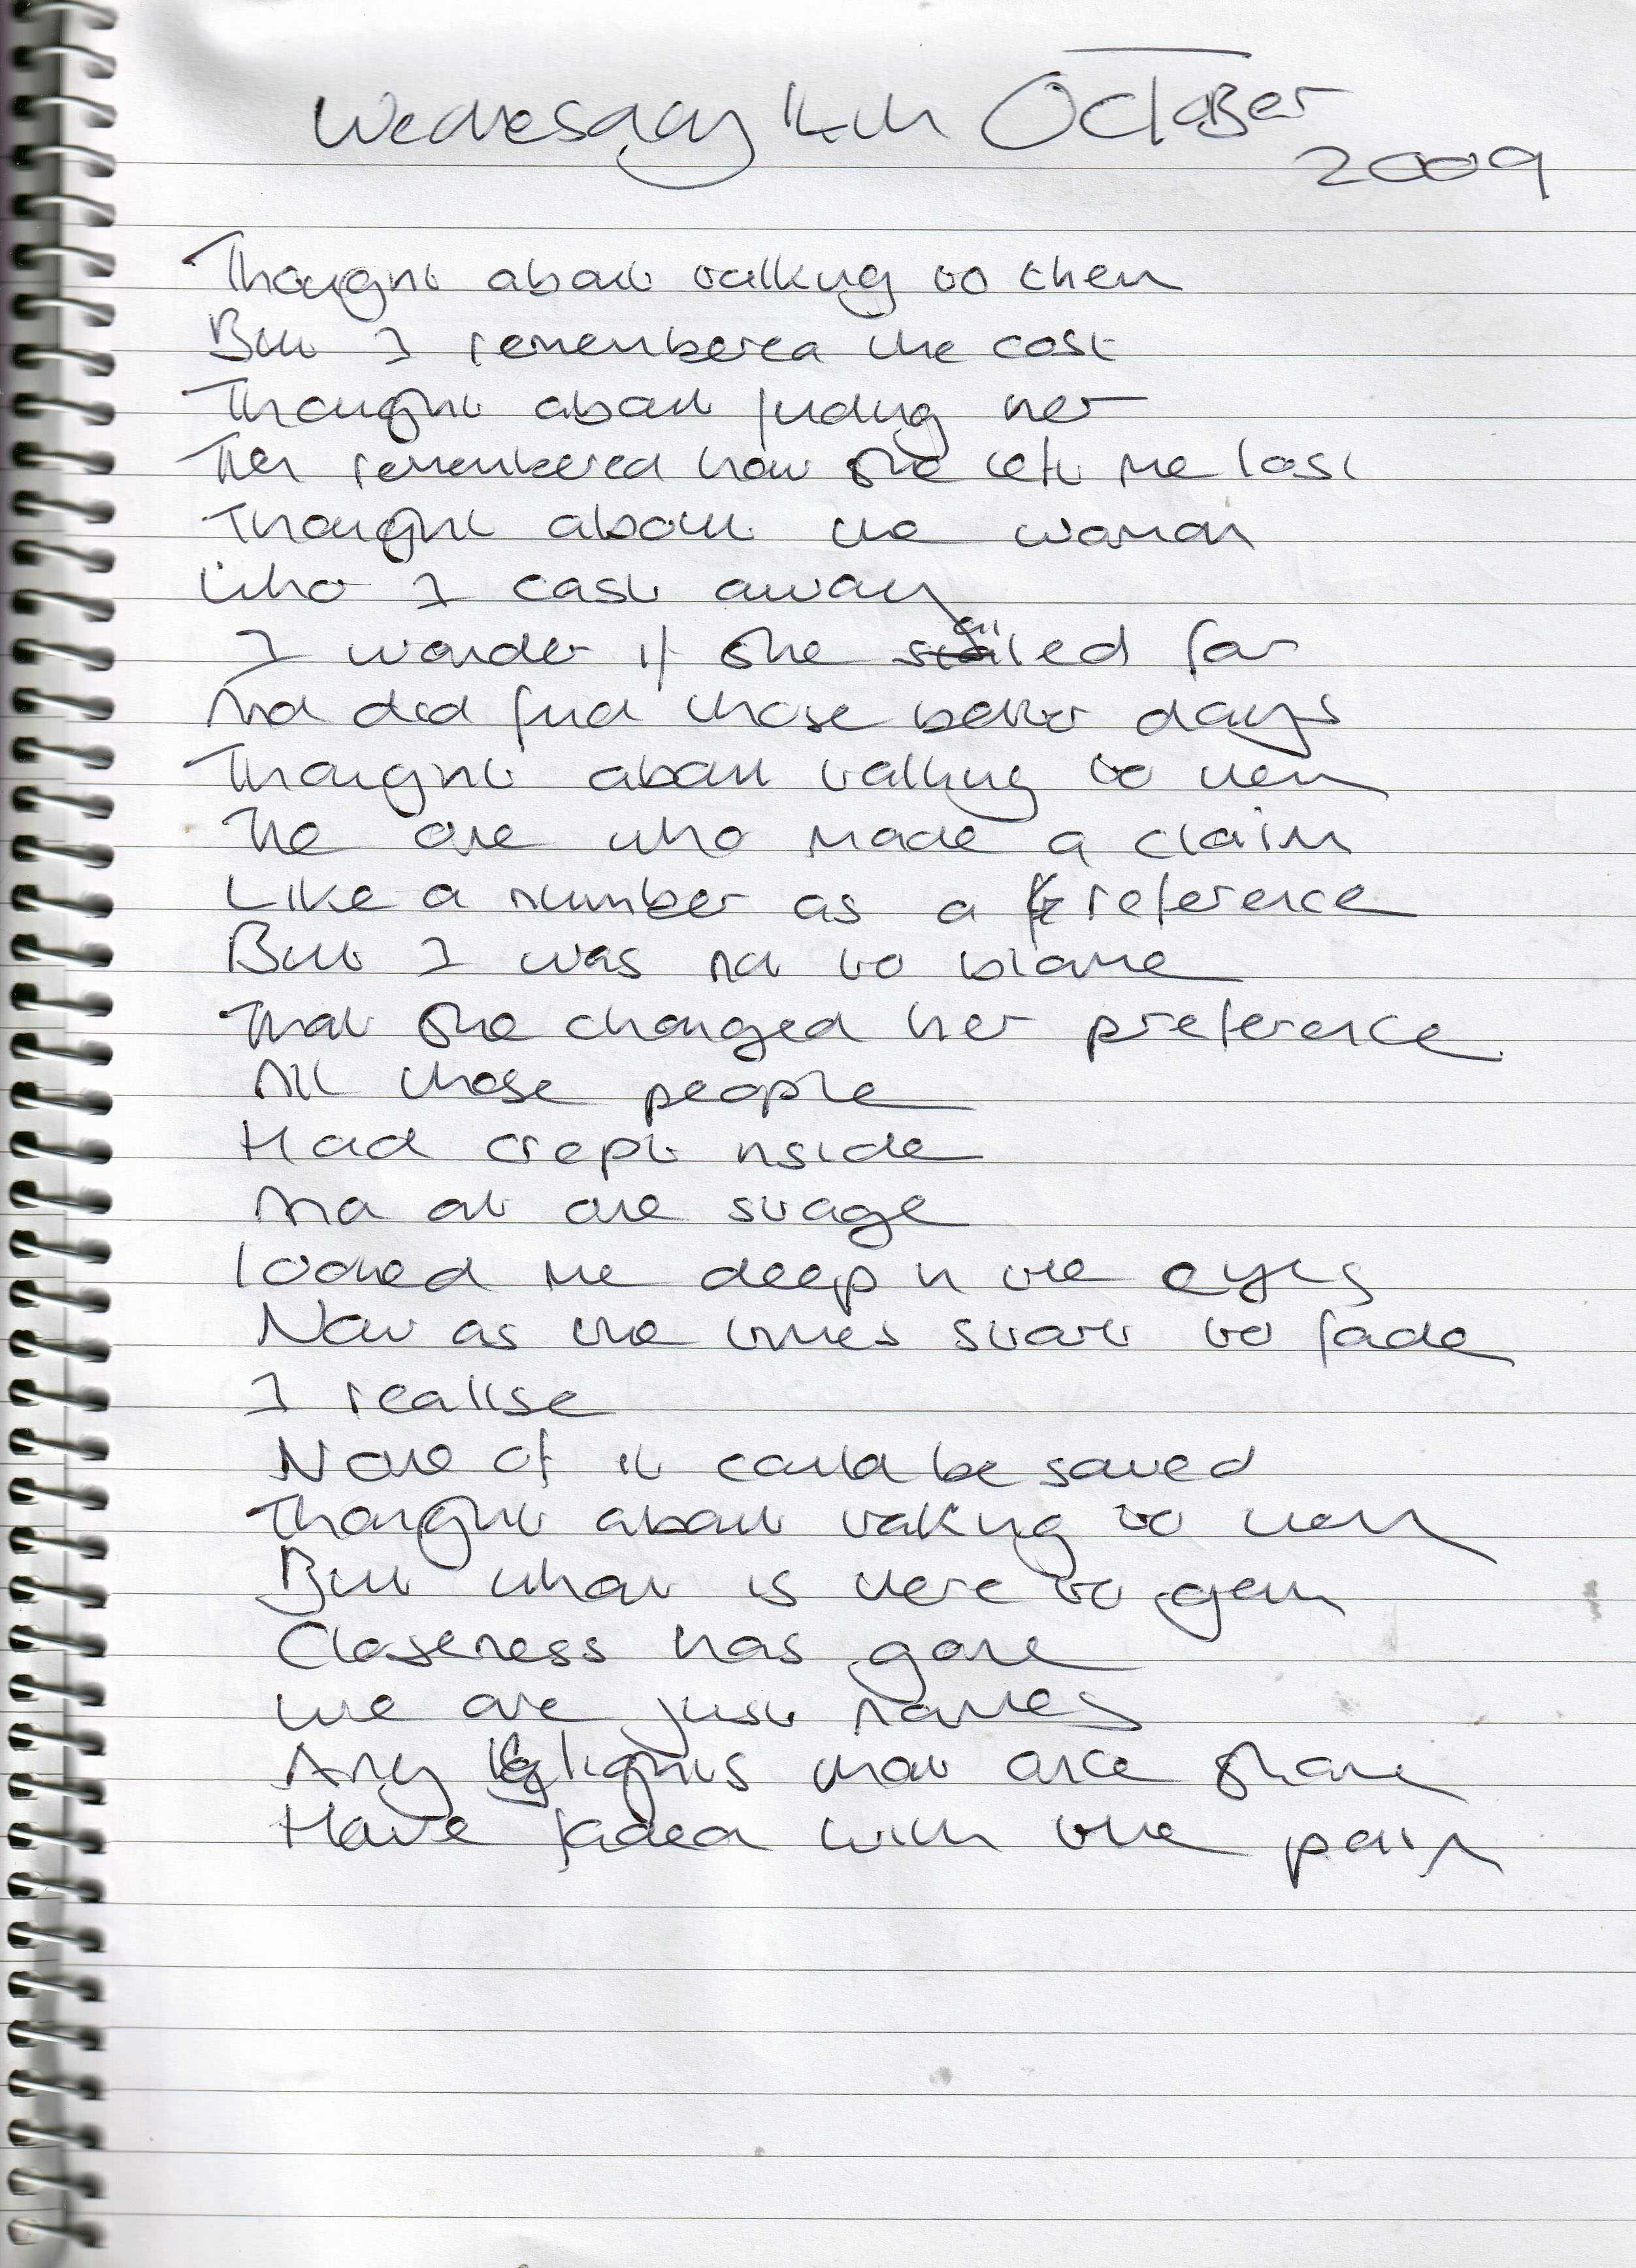 Wednesday 14th October
2009
Thought about talking to them
But I remembered the cost
Thought about finding her
Then remembered how she left me lost
Thought about the woman
Who I cast away
I wonder if she sailed far
And did find those better days
Thought about talking to them
The one who made a claim
Like a number as a reference
But I was not to blame
That she changed her preference
All those people
Had crept inside
And at one stage
looked me deep in the eyes
Now as the times start to fade
I realise
None of it could be saved
Thought about talking to them
But what is there to gain
Closeness has gone
We are just names
Any lights that once shone
Have faded with the pain